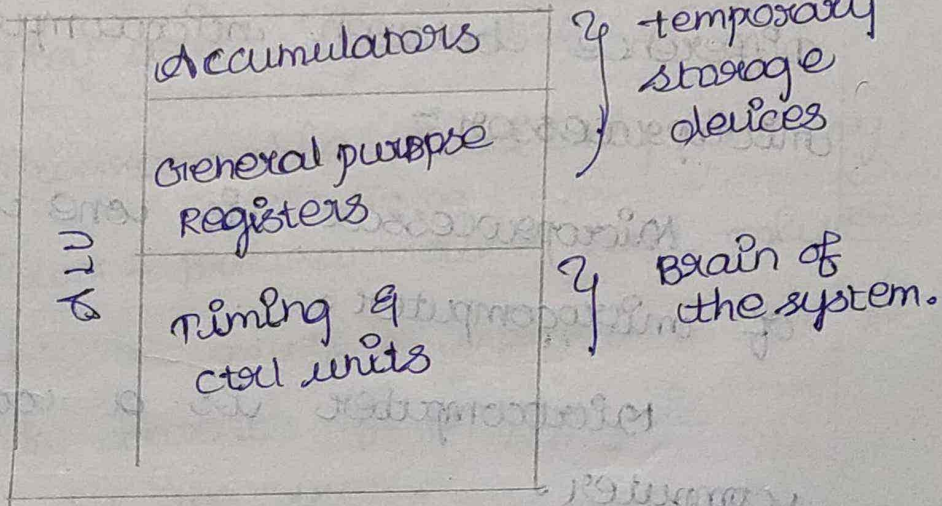 ALU
Accumulators
General purpose
Registers
Timing &
ctrl units
} temporary
storage
devices
} Brain of
the system.